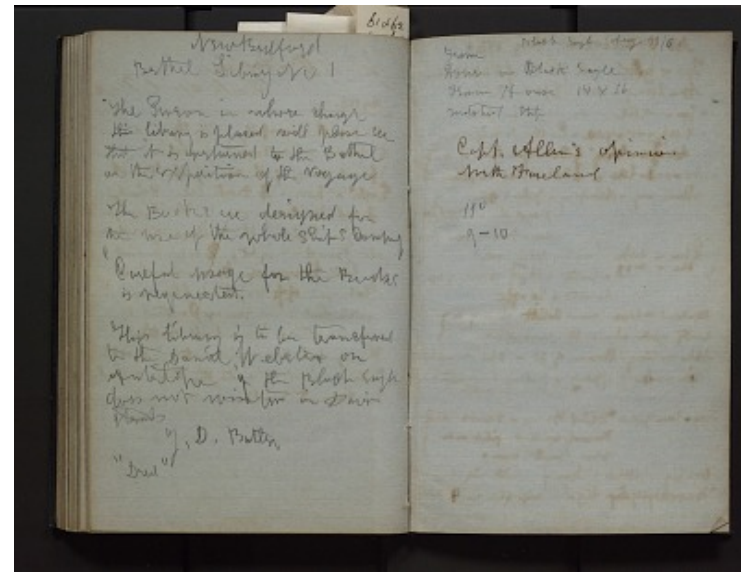 New Bedford
Bethel Library No 1
"The Person in whose charge
this library is placed will please see
that it is returned to the Bethel
on the expiration of the voyage
The Books are designed for
the use of the whole Ship's Company
"Careful usage for the Books
is requested.
This library is to be transferred
to the Daniel Webster on
if the Black Eagle
does not winter in
J. D. Butler
"Dred"
Black Eagle
From
in Black Eagle
14 x 16
Capt. Allen's opinion
North Foreland
110
9-10